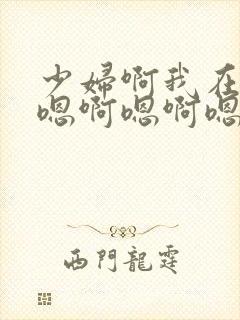 少婦啊我在
嗯啊嗯啊嗯
西門龍霆